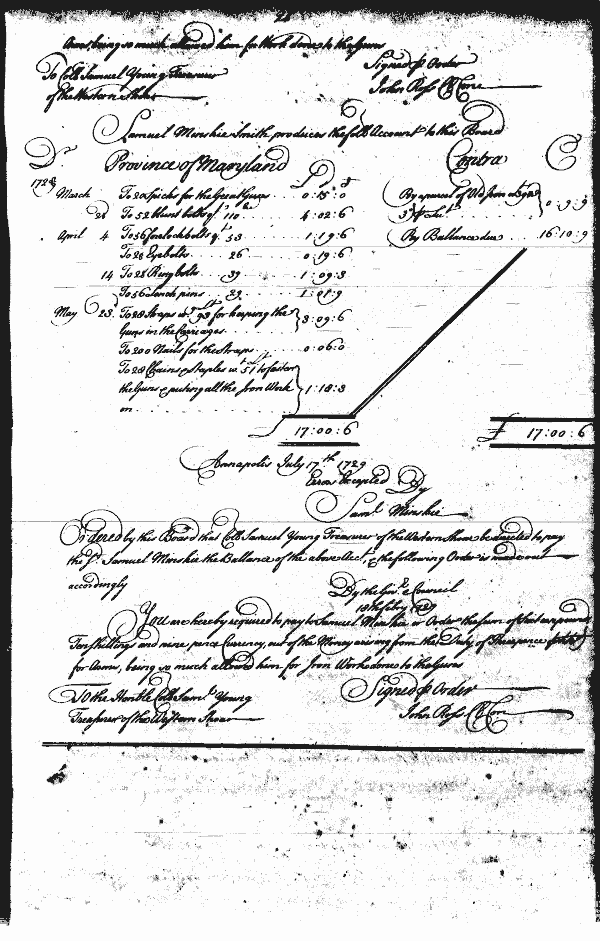 Arms, being so much allowed him for Work done to the Guns
To Coll Samuel Young Treasurer
of the Western Shore
Signed p Order
John Ross Cl Con
Samuel Minskie Smith produces the foll Account to this Board
Dr Province of Maryland
Contra C
1728
March To 20 Spicks for the Great Guns 0:15:0
To 52 blunt bolts qt 110 4:02:6
April 4 To 56 forelock bolts qt 53 1:19:6
To 28 Eyebolts 26 0:19:6
14 To 28 Ring bolts 39 1:09:3
To 56 Linch pins 29 1:01:9
May 23 To 28 Straps wt 93 for keeping the
Guns in the Carriages 3:09:6
To 200 Nails for the Straps 0:06:0
To 28 Chains & staples wt 51 to fasten
the Guns & puting all the Iron Work
on 1:18:3
17:00:6
By a parcel of Old Iron
0:9:9
By Ballance due 16:10:9
£ 17:00:6
Annapolis July 17th 1729
Errors Excepted By
Saml Minskie
Ordered by this Board that Coll Samuel Young Treasurer of the Western Shore be directed to pay
the sd Samuel Minskie the Ballance of the above Acct, & the following Order is made out
accordingly
By the Govr & Council
You are hereby required to pay to Samuel Minskie or Order the sum of Sixteen pounds
Ten shillings and nine pence Currency, out of the Money arising from the Duty of Three pence
for Arms, being so much allowed him for Iron Work done to the Guns
To the Honble Coll Saml Young
Treasurer of the Western Shoar
Signed p Order
John Ross Cl Con